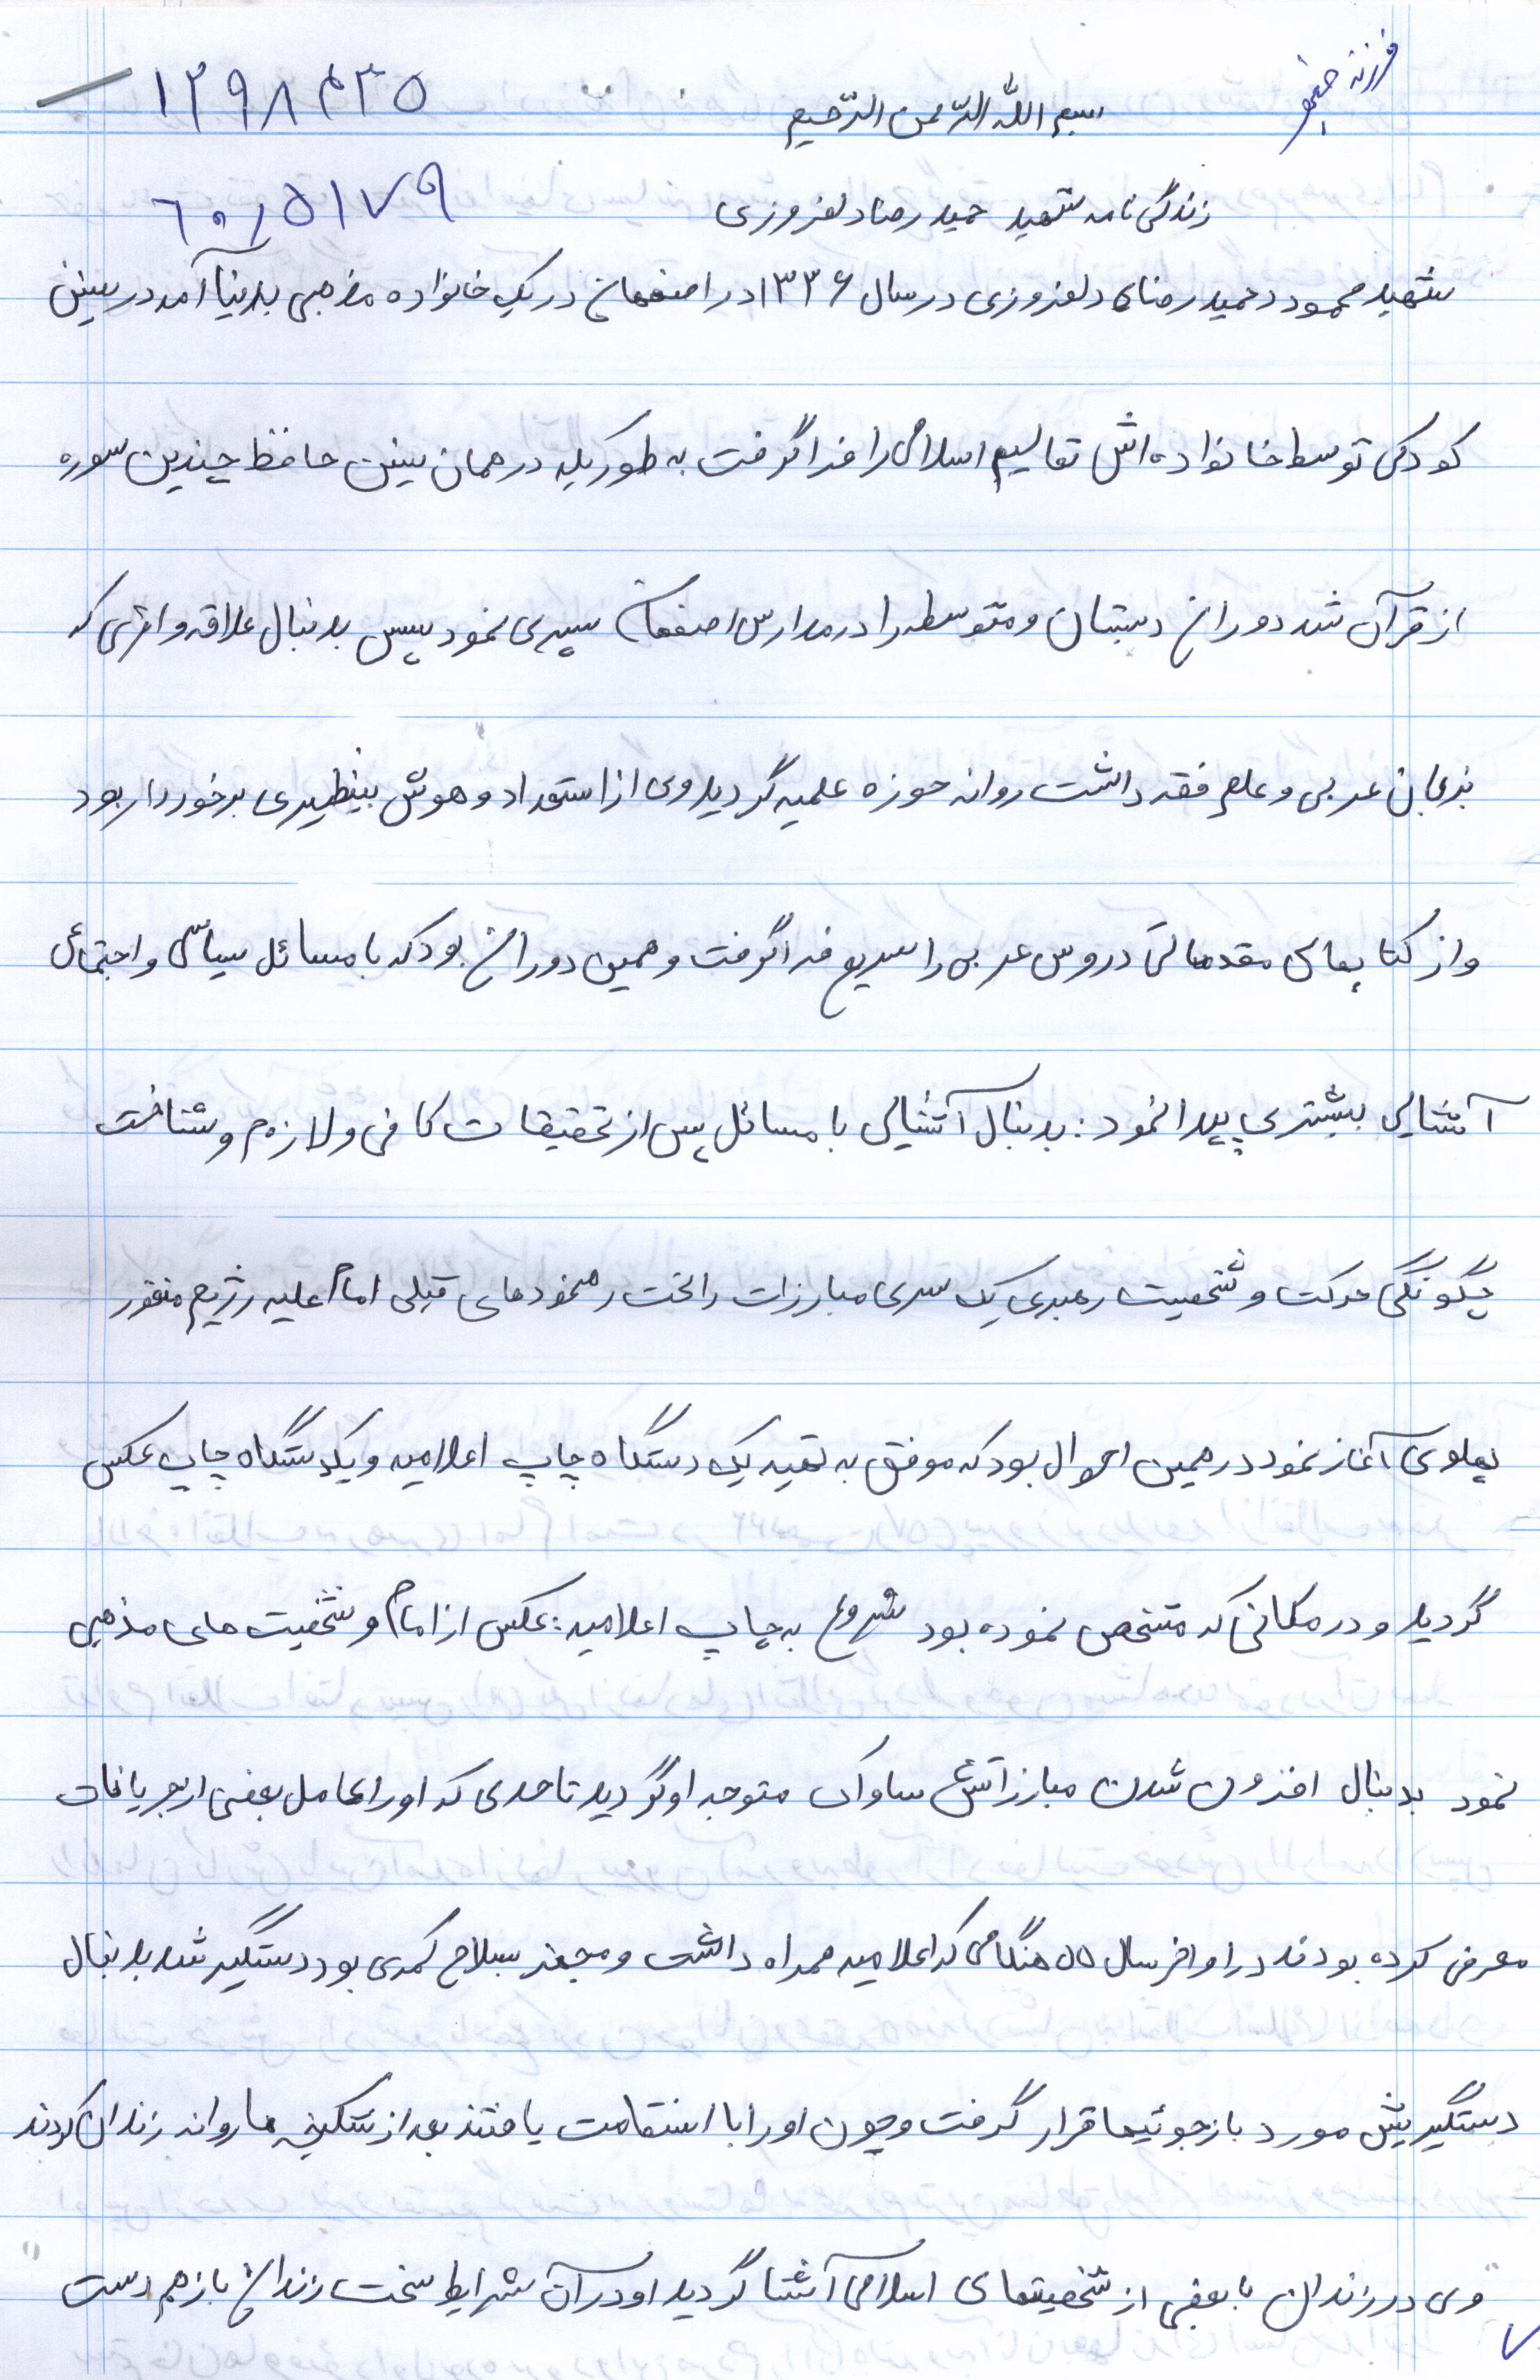 ۱۲۹۸۴۳۵
بسم الله الرّحمن الرّحیم
۶۰/۵۱۷۹
زندگی نامه شهید حمید رضا دلفروزی
شهید محمود حمید رضای دلفروزی در سال ۱۳۳۶ در اصفهان در یک خانواده مذهبی بدنیا آمد در سنین
کودکی توسط خانواده اش تعالیم اسلامی را فرا گرفت به طوریکه در همان سنین حافظ چندین سوره
از قرآن شد دوران دبستان و متوسطه را در مدارس اصفهان سپری نمود سپس بدنبال علاقه وافری که
بزبان عربی و علم فقه داشت روانه حوزه علمیه گردید وی از استعداد و هوش بینظیری برخوردار بود
و از کتابهای مقدماتی دروس عربی را سریع فرا گرفت و همین دوران بود که با مسائل سیاسی و اجتماعی
آشنایی بیشتری پیدا نمود: بدنبال آشنایی با مسائل پس از تحقیقات کافی و لازم و شناخت
چگونگی حرکت و شخصیت رهبری یک سری مبارزات را تحت رهنمودهای قبلی امام علیه رژیم منفور
پهلوی آغاز نمود در همین احوال بود که موفق به تهیه یک دستگاه چاپ اعلامیه و یکدستگاه چاپ عکس
گردید و در مکانی که مشخص نموده بود شروع به چاپ اعلامیه: عکس از امام و شخصیت های مذهبی
نمود بدنبال افزون شدن مبارزاتش ساواک متوجه او گردید تا حدی که او را عامل بعضی از جریانات
معرفی کرده بودند در اواخر سال ۵۵ هنگامی که اعلامیه همراه داشت و مجهز بسلاح کمری بود دستگیر شد بدنبال
دستگیریش مورد بازجوئیها قرار گرفت و چون او را با استقامت یافتند بعد از شکنجه ها روانه زندان کردند
وی در زندان با بعضی از شخصیتهای اسلامی آشنا گردید او در آن شرایط سخت زندان باز هم دست